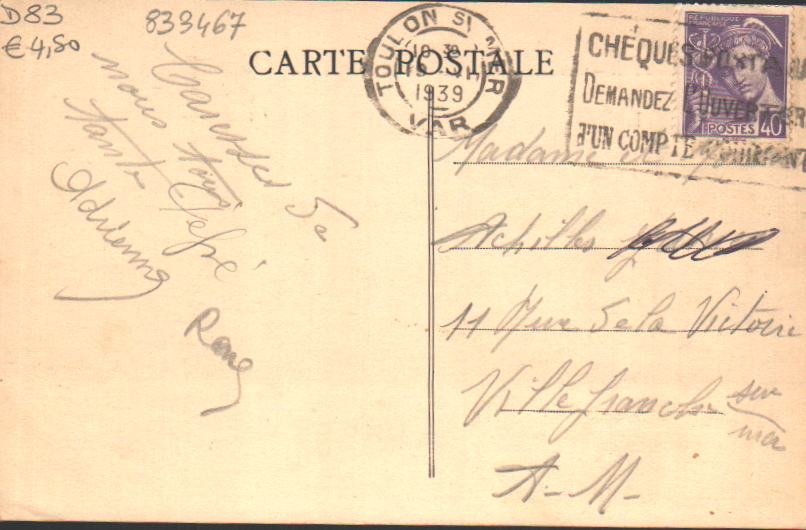 D83
€ 4,50
833467
CARTE POSTALE
TOULON Sr MER
1939
VAR
CHEQUES POSTAUX
DEMANDEZ L'OUVERTURE
d'UN COMPTE COURANT
RÉPUBLIQUE
FRANÇAISE
POSTES 40
Caresses de
nous tous
tante
Adrienne
René
Madame et
Achilles
11 Rue de la Victoire
Villefranche sur
mer
A-M-